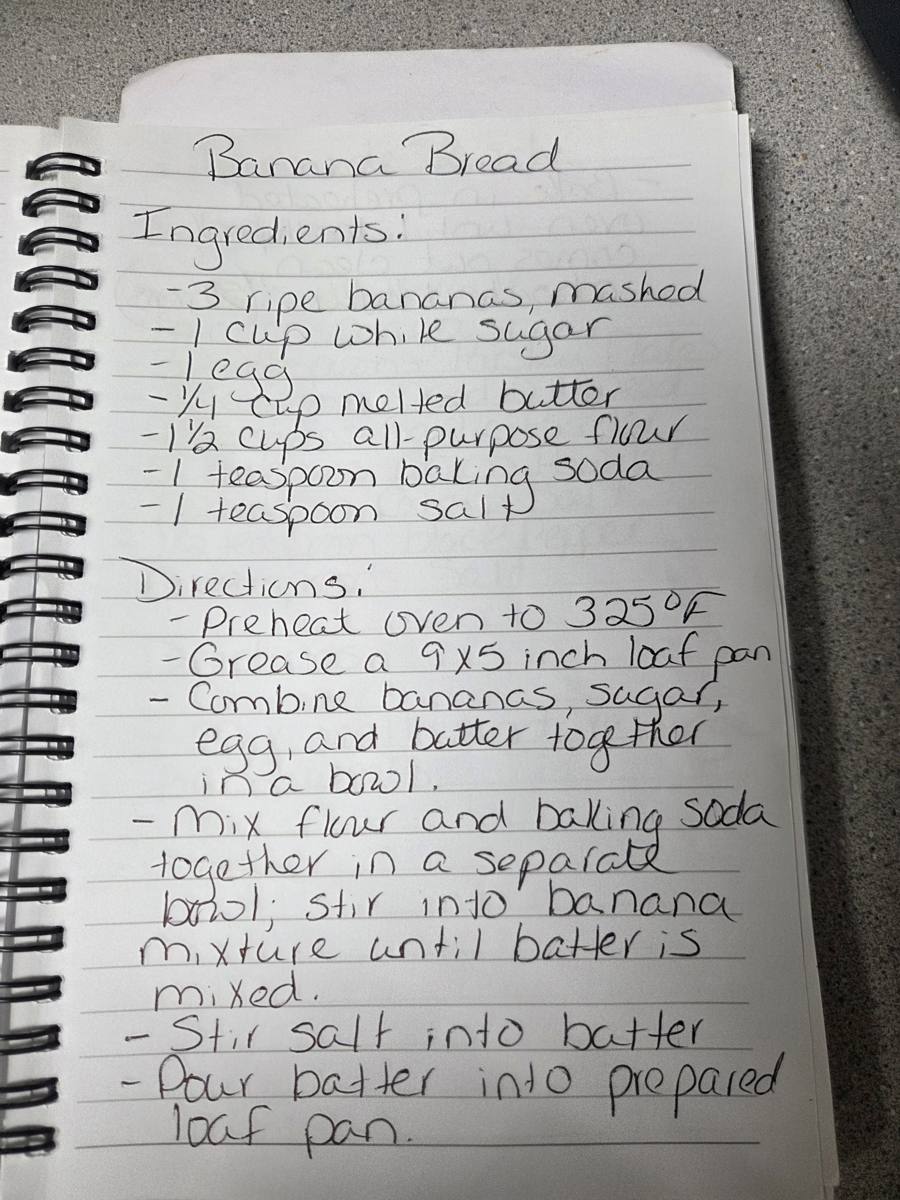 Banana Bread
Ingredients:
-3 ripe bananas, mashed
- 1 cup white sugar
- 1 egg
- 1/4 cup melted butter
- 1 1/2 cups all-purpose flour
- 1 teaspoon baking soda
- 1 teaspoon salt
Directions:
- Preheat oven to 325°F
- Grease a 9x5 inch loaf pan
- Combine bananas, sugar,
egg, and butter together
in a bowl.
- Mix flour and baking soda
together in a separate
bowl; stir into banana
mixture until batter is
mixed.
- Stir salt into batter
- Pour batter into prepared
loaf pan.